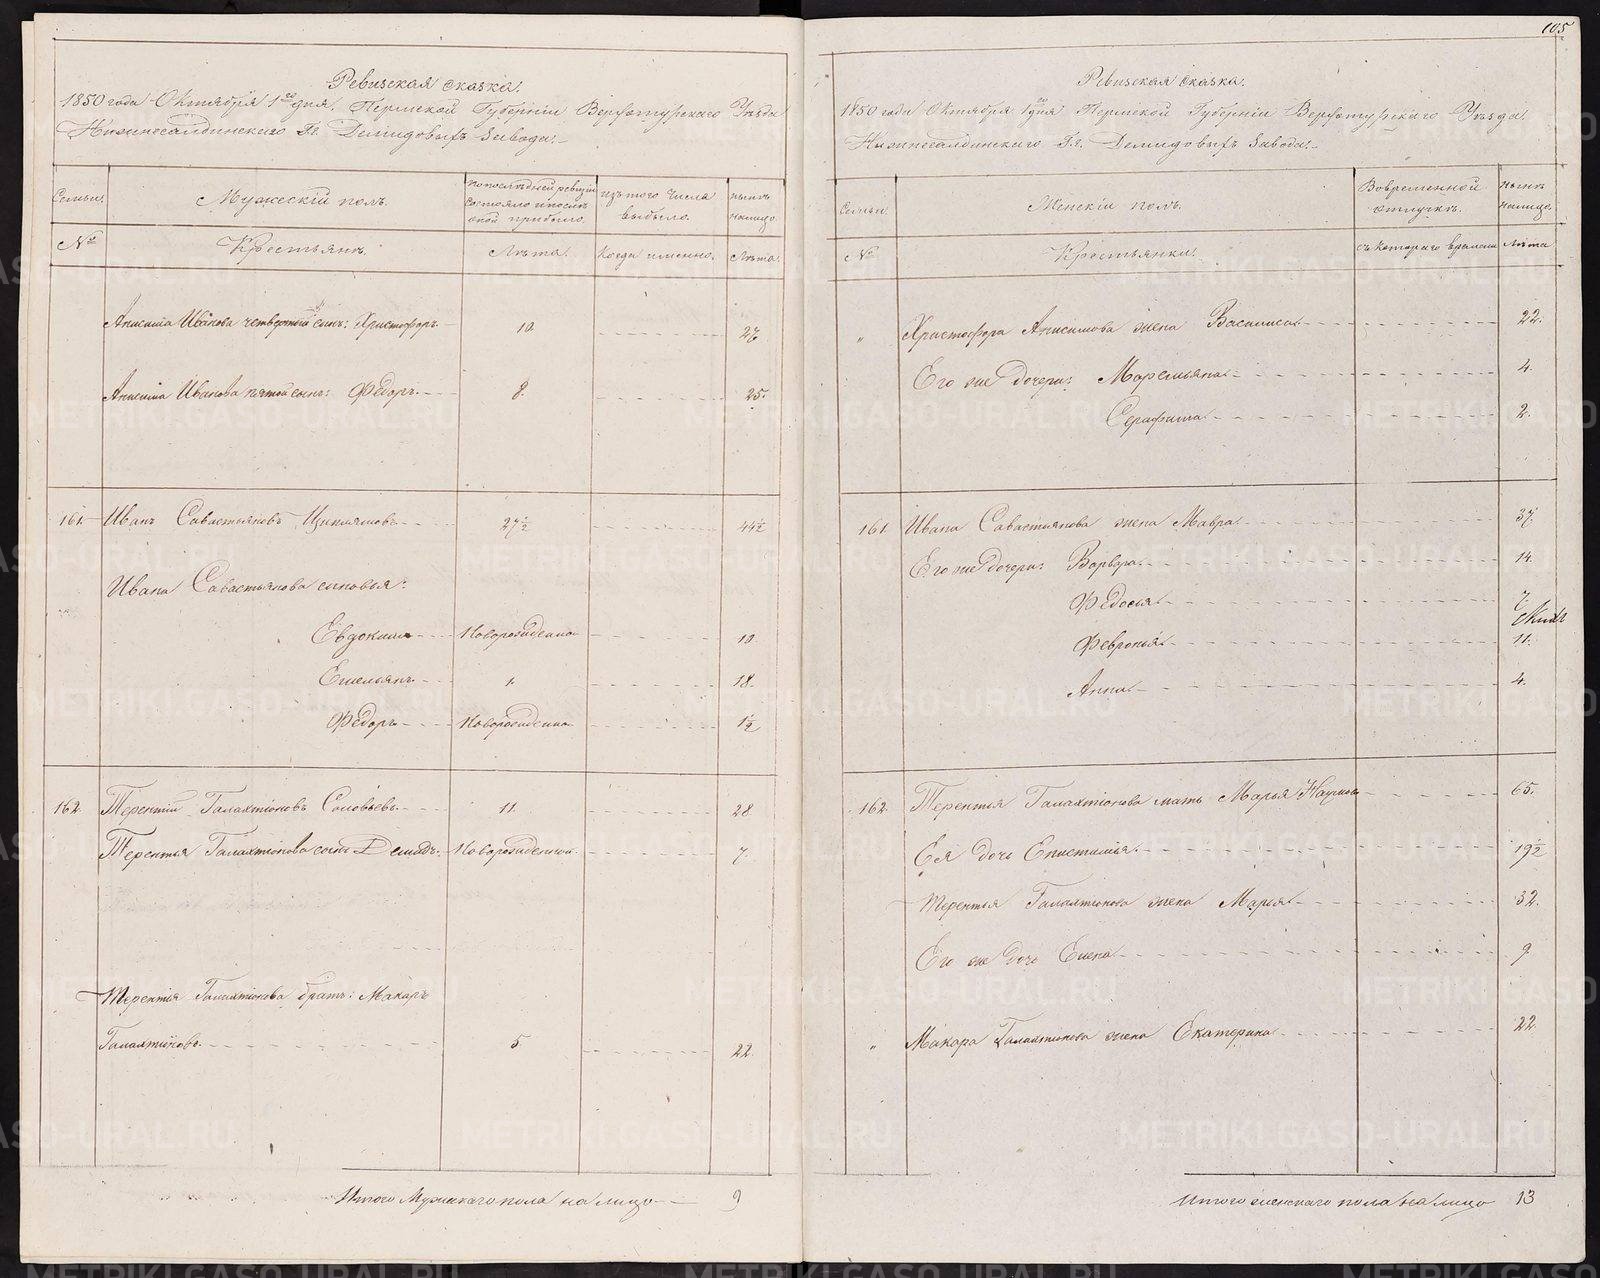 Ревизская сказка.
1850 года Октября 1го дня. Пермской Губерніи Верхотурскаго Уѣзда
Нижнесалдинскаго Гг. Демидовыхъ Завода.
Семьи. Мужескій полъ. По последней ревизіи состояло и после оной прибыло. Изъ того числа выбыло. Нынѣ налицо.
№ Крестьянъ. Лѣта. Когда именно. Лѣта.
Анисима Иванова четвертый сынъ: Христофоръ 10 27
Анисима Иванова пятой сынъ: Ѳедоръ. 8. 25.
161. Иванъ Савастьяновъ 27½ 44½
Ивана Савастьянова сыновья:
Евдокимъ Новорожденно 10.
Емельянъ 1 18
Ѳедоръ Новорожденно 1½
162 Терентій Галахтіоновъ Соловьевъ 11 28
Терентья Галахтіонова сынъ Демидъ. Новорожденной 7.
Терентія Галахтіонова братъ: Макаръ
Галахтіоновъ 5 22
Итого Мужескаго пола на лицо 9
105
Ревизская сказка.
1850 года Октября 1го дня Пермской Губерніи Верхотурскаго Уѣзда.
Нижнесалдинскаго Гг. Демидовыхъ Завода.
Семьи. Женскій полъ. Вовременной отлучкѣ. Нынѣ налицо.
№ Крестьянки. Съ котораго времени Лѣта
" Христофора Анисимова жена Василиса 22.
Его же дочери: Маремьяна 4.
Серафима 2.
161 Ивана Савастьянова жена Мавра 37
Его же дочери: Варвара 14.
Ѳедосья 7
Февронья 11.
Анна 4.
162 Терентья Галахтіонова мать Марья Наумова 65.
Ея дочь Епистимія 19½
Терентья Галахтіонова жена Марья 32.
Его же дочь Елена 9
" Макара Галахтіонова жена Екатерина 22
Итого женскаго пола на лицо 13
METRIKI.GASO-URAL.RU